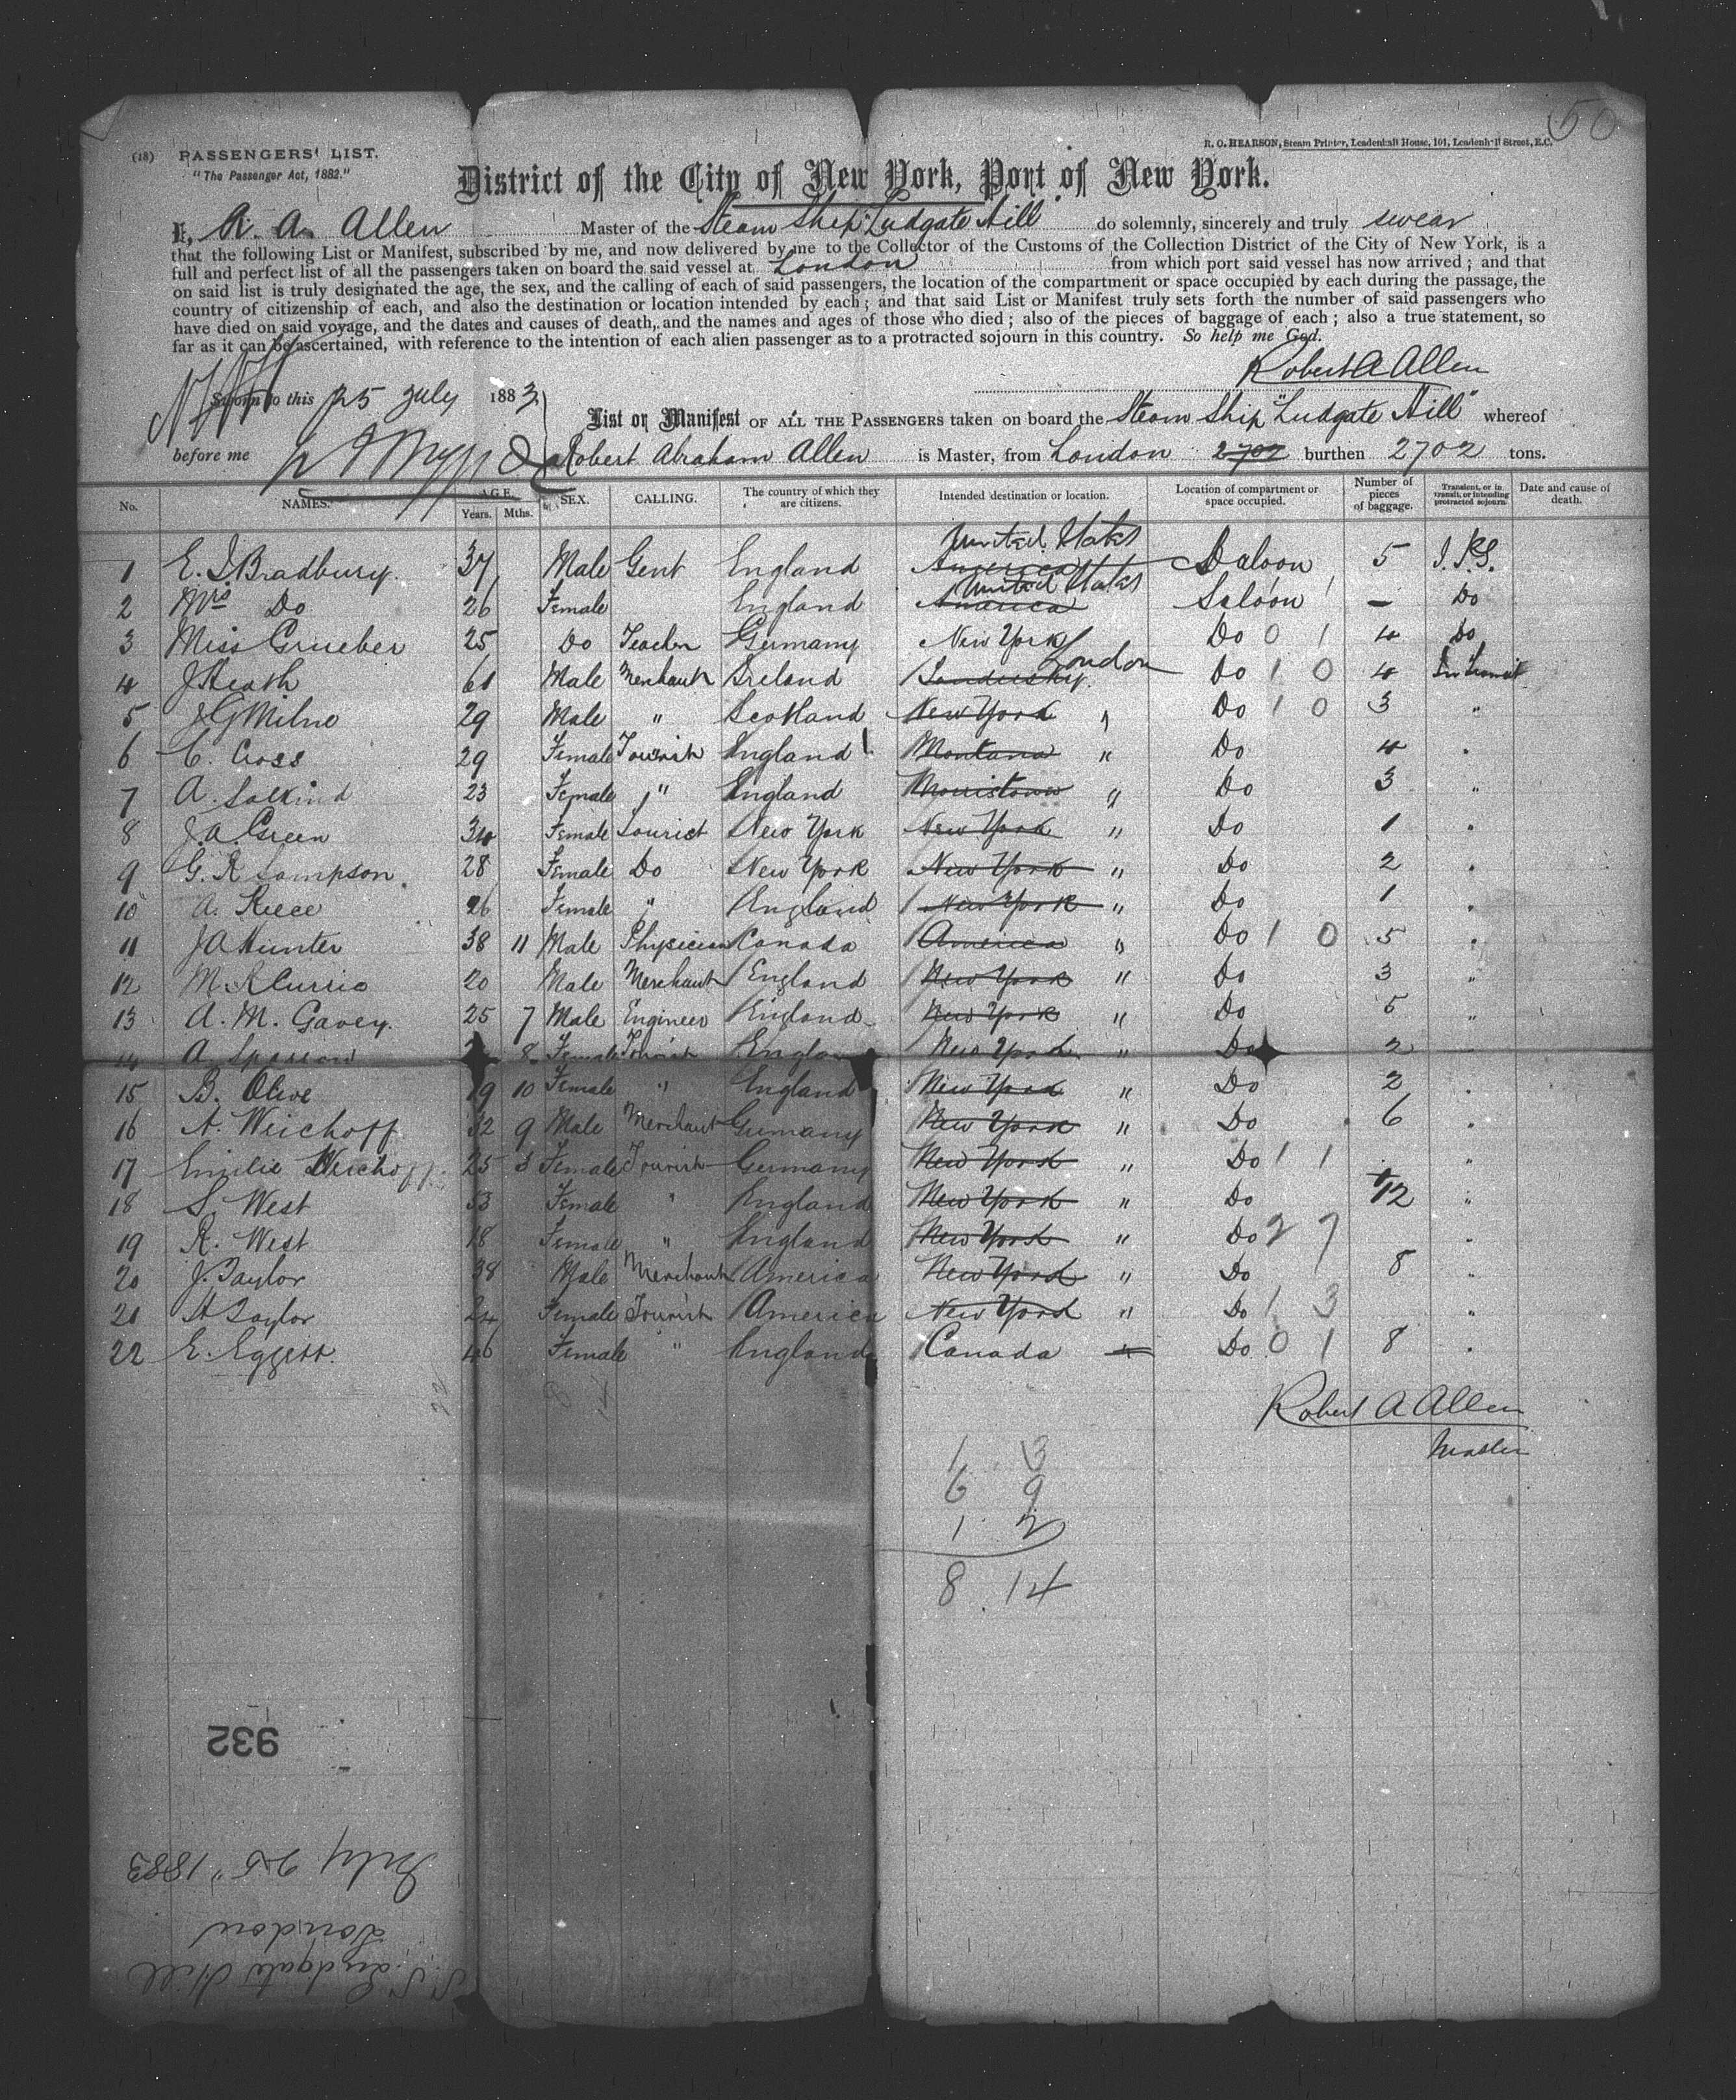 50
(18) PASSENGERS' LIST.
"The Passenger Act, 1882."
R. O. HEARSON, Steam Printer, Leadenhall House, 101, Leadenhall Street, E.C.
District of the City of New York, Port of New York.
I, R. A. Allen Master of the Steam Ship "Ludgate Hill" do solemnly, sincerely and truly swear
that the following List or Manifest, subscribed by me, and now delivered by me to the Collector of the Customs of the Collection District of the City of New York, is a
full and perfect list of all the passengers taken on board the said vessel at London from which port said vessel has now arrived; and that
on said list is truly designated the age, the sex, and the calling of each of said passengers, the location of the compartment or space occupied by each during the passage, the
country of citizenship of each, and also the destination or location intended by each; and that said List or Manifest truly sets forth the number of said passengers who
have died on said voyage, and the dates and causes of death, and the names and ages of those who died; also of the pieces of baggage of each; also a true statement, so
far as it can be ascertained, with reference to the intention of each alien passenger as to a protracted sojourn in this country. So help me God.
Robert A Allen
Sworn to this 25 July 1883
List or Manifest OF ALL THE PASSENGERS taken on board the Steam Ship "Ludgate Hill" whereof
before me
Robert Abraham Allen is Master, from London 2702 burthen 2702 tons.
No. NAMES. AGE. Years. Mths. SEX. CALLING. The country of which they are citizens. Intended destination or location. Location of compartment or space occupied. Number of pieces of baggage. Transient, or in transit, or intending protracted sojourn. Date and cause of death.
1 E. J. Bradbury. 37 Male Gent England America United States Saloon 5 I.P.S.
2 Mrs Do 26 Female England America United States Saloon — Do
3 Miss Grueber 25 Do Teacher Germany New York Do 0 1 4 Do
4 J Heath 61 Male Merchant Ireland Sandusky. London Do 1 0 4 In Transit
5 J G Milne 29 Male " Scotland New York " Do 1 0 3 "
6 C. Cross 29 Female Tourist England Montana " Do 4 "
7 A. Salkind 23 Female " England Morristown " Do 3 "
8 J. A. Green 34 Female Tourist New York New York " Do 1 "
9 G. R Sampson 28 Female Do New York New York " Do 2 "
10 A. Reece 26 Female " England New York " Do 1 "
11 J A Hunter 38 11 Male Physician Canada America " Do 1 0 5 "
12 M. R Currie 20 Male Merchant England New York " Do 3 "
13 A. M. Gavey. 25 7 Male Engineer England New York " Do 5 "
14 A 8 Female Tourist England New York " Do 2
15 B. Olive 19 10 Female " England New York " Do 2 "
16 A. Weichoff 32 9 Male Merchant Germany New York " Do 6 "
17 Emilie Weichoff 25 3 Female Tourist Germany New York " Do 1 1 "
18 S. West 53 Female " England New York " Do 12 "
19 R. West 18 Female " England New York " Do 2 7 "
20 J. Taylor 38 Male Merchant America New York " Do 8 "
21 H Taylor 24 Female Tourist America New York " Do 1 3 "
22 E. Eggett. 46 Female " England Canada " Do 0 1 8 "
Robert A Allen
Master
1 3
6 9
1 2
8 14
932
July 25" 1883
London
S.S. Ludgate Hill